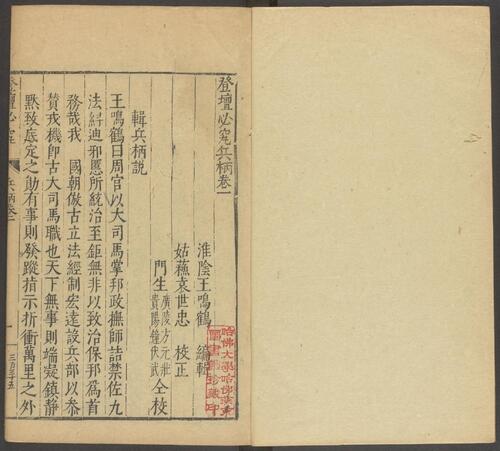 登壇必究兵柄卷一
淮陰王鳴鶴 編輯
姑蘇袁世忠 校正
門生
廣陵方元壯
貴陽鐘伏武
仝校
輯兵柄說
王鳴鶴曰周官以大司馬掌邦政撫師詰禁佐九
法紏迪邪慝所統治至鉅無非以致治保邦爲首
務哉我 國朝倣古立法經制宏達設兵部以叅
贊戎機卽古大司馬職也天下無事則端凝鎮靜
黙致底定之勛有事則發蹤指示折衝萬里之外
登壇必究
兵柄卷一
一
哈佛大學哈佛燕京
圖書館珍藏印